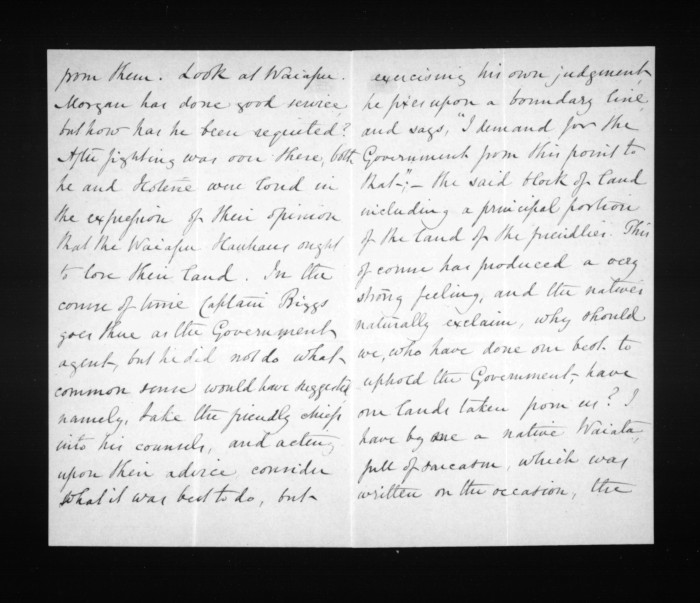 from them. Look at Waiapu.
Morgan has done good service
but how has he been requited?
After fighting was over there, both
he and Hotene were loud in
the expression of their opinion
that the Waiapu Hauhaus ought
to lose their land. In the
course of time Captain Biggs
goes there as the Government
agent, but he did not do what
common sense would have suggested
namely, take the friendly chiefs
into his counsels, and acting
upon their advice, consider
what it was best to do, but
exercising his own judgement,
he fixes upon a boundary line,
and says, "I demand for the
Government from this point to
that"; – the said block of land
including a principal portion
of the land of the friendlies. This
of course has produced a very
strong feeling, and the natives
naturally exclaim, why should
we, who have done our best to
uphold the Government, have
our lands taken from us? I
have by me a native Waiata,
full of sarcasm, which was
written on the occasion, the